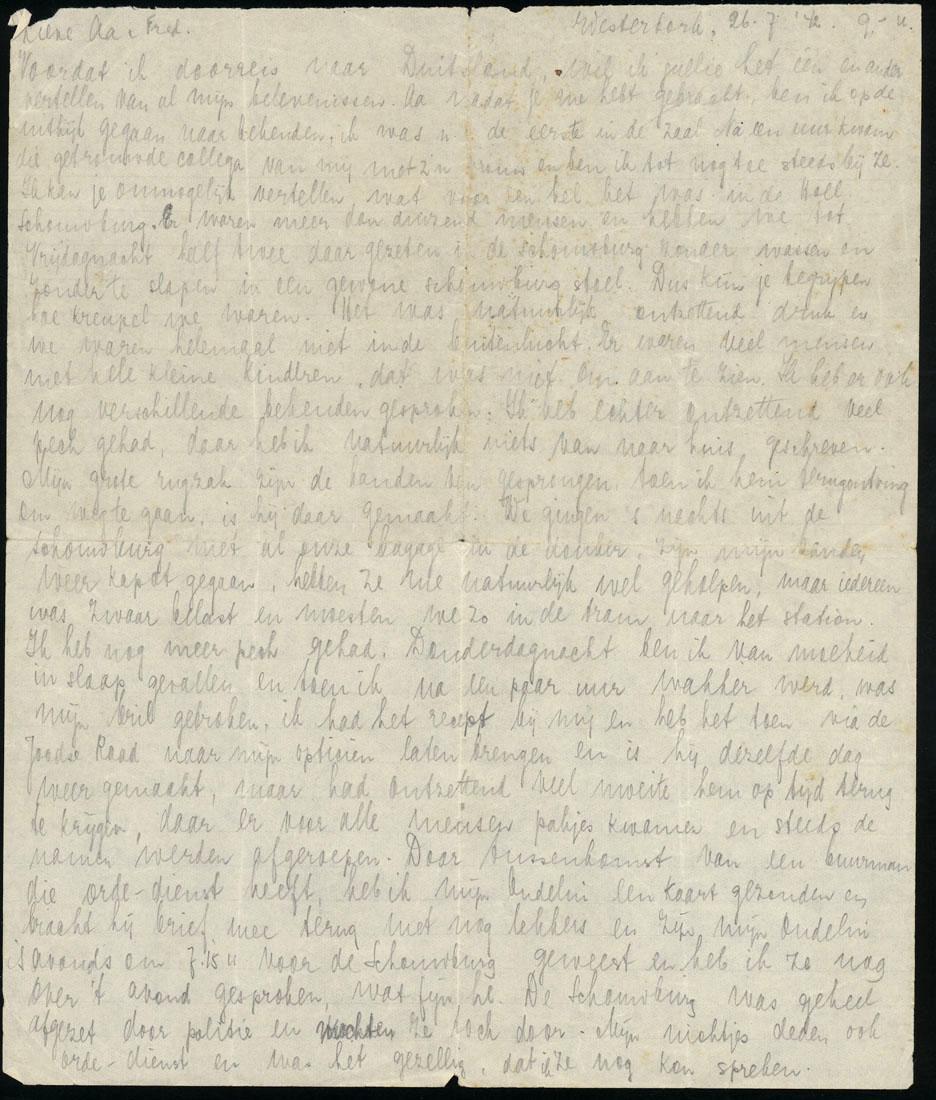 Lieve Aa & Fred.
Westerbork, 26-7 '42 9,- u.
Voordat ik doorreis naar Duitsland, wil ik jullie het één en ander
vertellen van al mijn belevenissen. Aa nadat je me hebt gebracht, ben ik op de
uitkijk gegaan naar bekenden, ik was n.l. de eerste in de zaal Na een uur kwam
die getrouwde collega van mij met z'n vrouw en ben ik tot nog toe steeds bij ze.
Ik kan je onmogelijk vertellen wat voor een hel het was in de Holl.
Schouwburg. Er waren meer dan duizend mensen en hebben we tot
Vrijdagnacht half twee daar gezeten in de schouwburg zonder wassen en
zonder te slapen in een gewone schouwburg stoel. Dus kun je begrijpen
hoe kreupel we waren. Het was natuurlijk ontzettend druk en
we waren helemaal niet in de buitenlucht. Er waren veel mensen
met hele kleine kinderen, dat was niet om aan te zien. Ik heb er ook
nog verschillende bekenden gesproken. Ik heb echter ontzettend veel
pech gehad, daar heb ik natuurlijk niets van naar huis geschreven.
Mijn grote rugzak zijn de banden van gesprongen, toen ik hem
om weg te gaan, is hij daar gemaakt. We gingen 's nachts uit de
schouwburg met al onze bagage in de donker, zijn mijn banden
weer kapot gegaan, hebben ze me natuurlijk wel geholpen, maar iedereen
was zwaar belast en moesten we zo in de tram naar het station.
Ik heb nog meer pech gehad. Donderdagnacht ben ik van moeheid
in slaap gevallen en toen ik na een paar uur wakker werd, was
mijn bril gebroken, ik had het recept bij mij en heb het toen via de
Joodse Raad naar mijn opticien laten brengen en is hij dezelfde dag
weer gemaakt, maar had ontzettend veel moeite hem op tijd terug
te krijgen, daar er voor alle mensen pakjes kwamen en steeds de
namen werden afgeroepen. Door tussenkomst van een buurman
die orde-dienst heeft, heb ik mijn oudelui een kaart gezonden en
bracht hij brief mee terug met nog lekkers en zijn mijn oudelui
's avonds om 7.15 u voor de Schouwburg geweest en heb ik ze nog
over 't avond gesproken, wat fijn hè. De Schouwburg was geheel
afgezet door politie en mochten ze toch door. Mijn nichtjes deden ook
orde-dienst en was het gezellig, dat ik ze nog kon spreken.